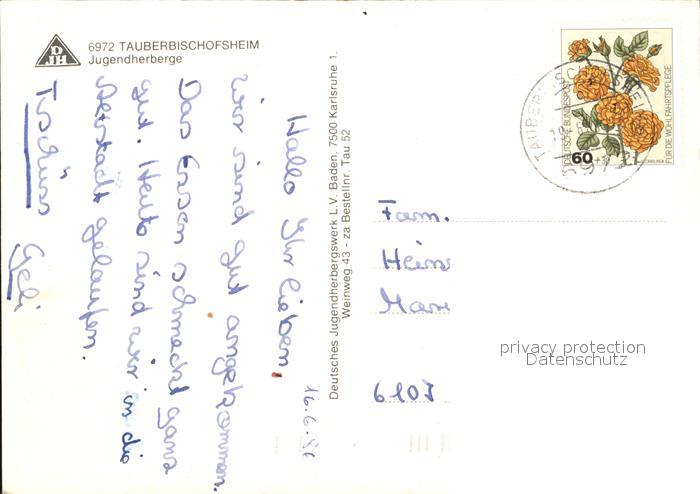 DJH
6972 TAUBERBISCHOFSHEIM
Jugendherberge
16.6.86
Hallo Ihr lieben,
wir sind gut angekommen.
Das Essen schmeckt ganz
gut. Heute sind wir in die
Stadt gelaufen.
Tschüss Geli
Deutsches Jugendherbergswerk L.V. Baden, 7500 Karlsruhe 1.
Weinweg 43 - za Bestellnr. Tau 52
DEUTSCHE BUNDESPOST
60
FÜR DIE WOHLFAHRTSPFLEGE
Fam.
Heins
6103
privacy protection
Datenschutz